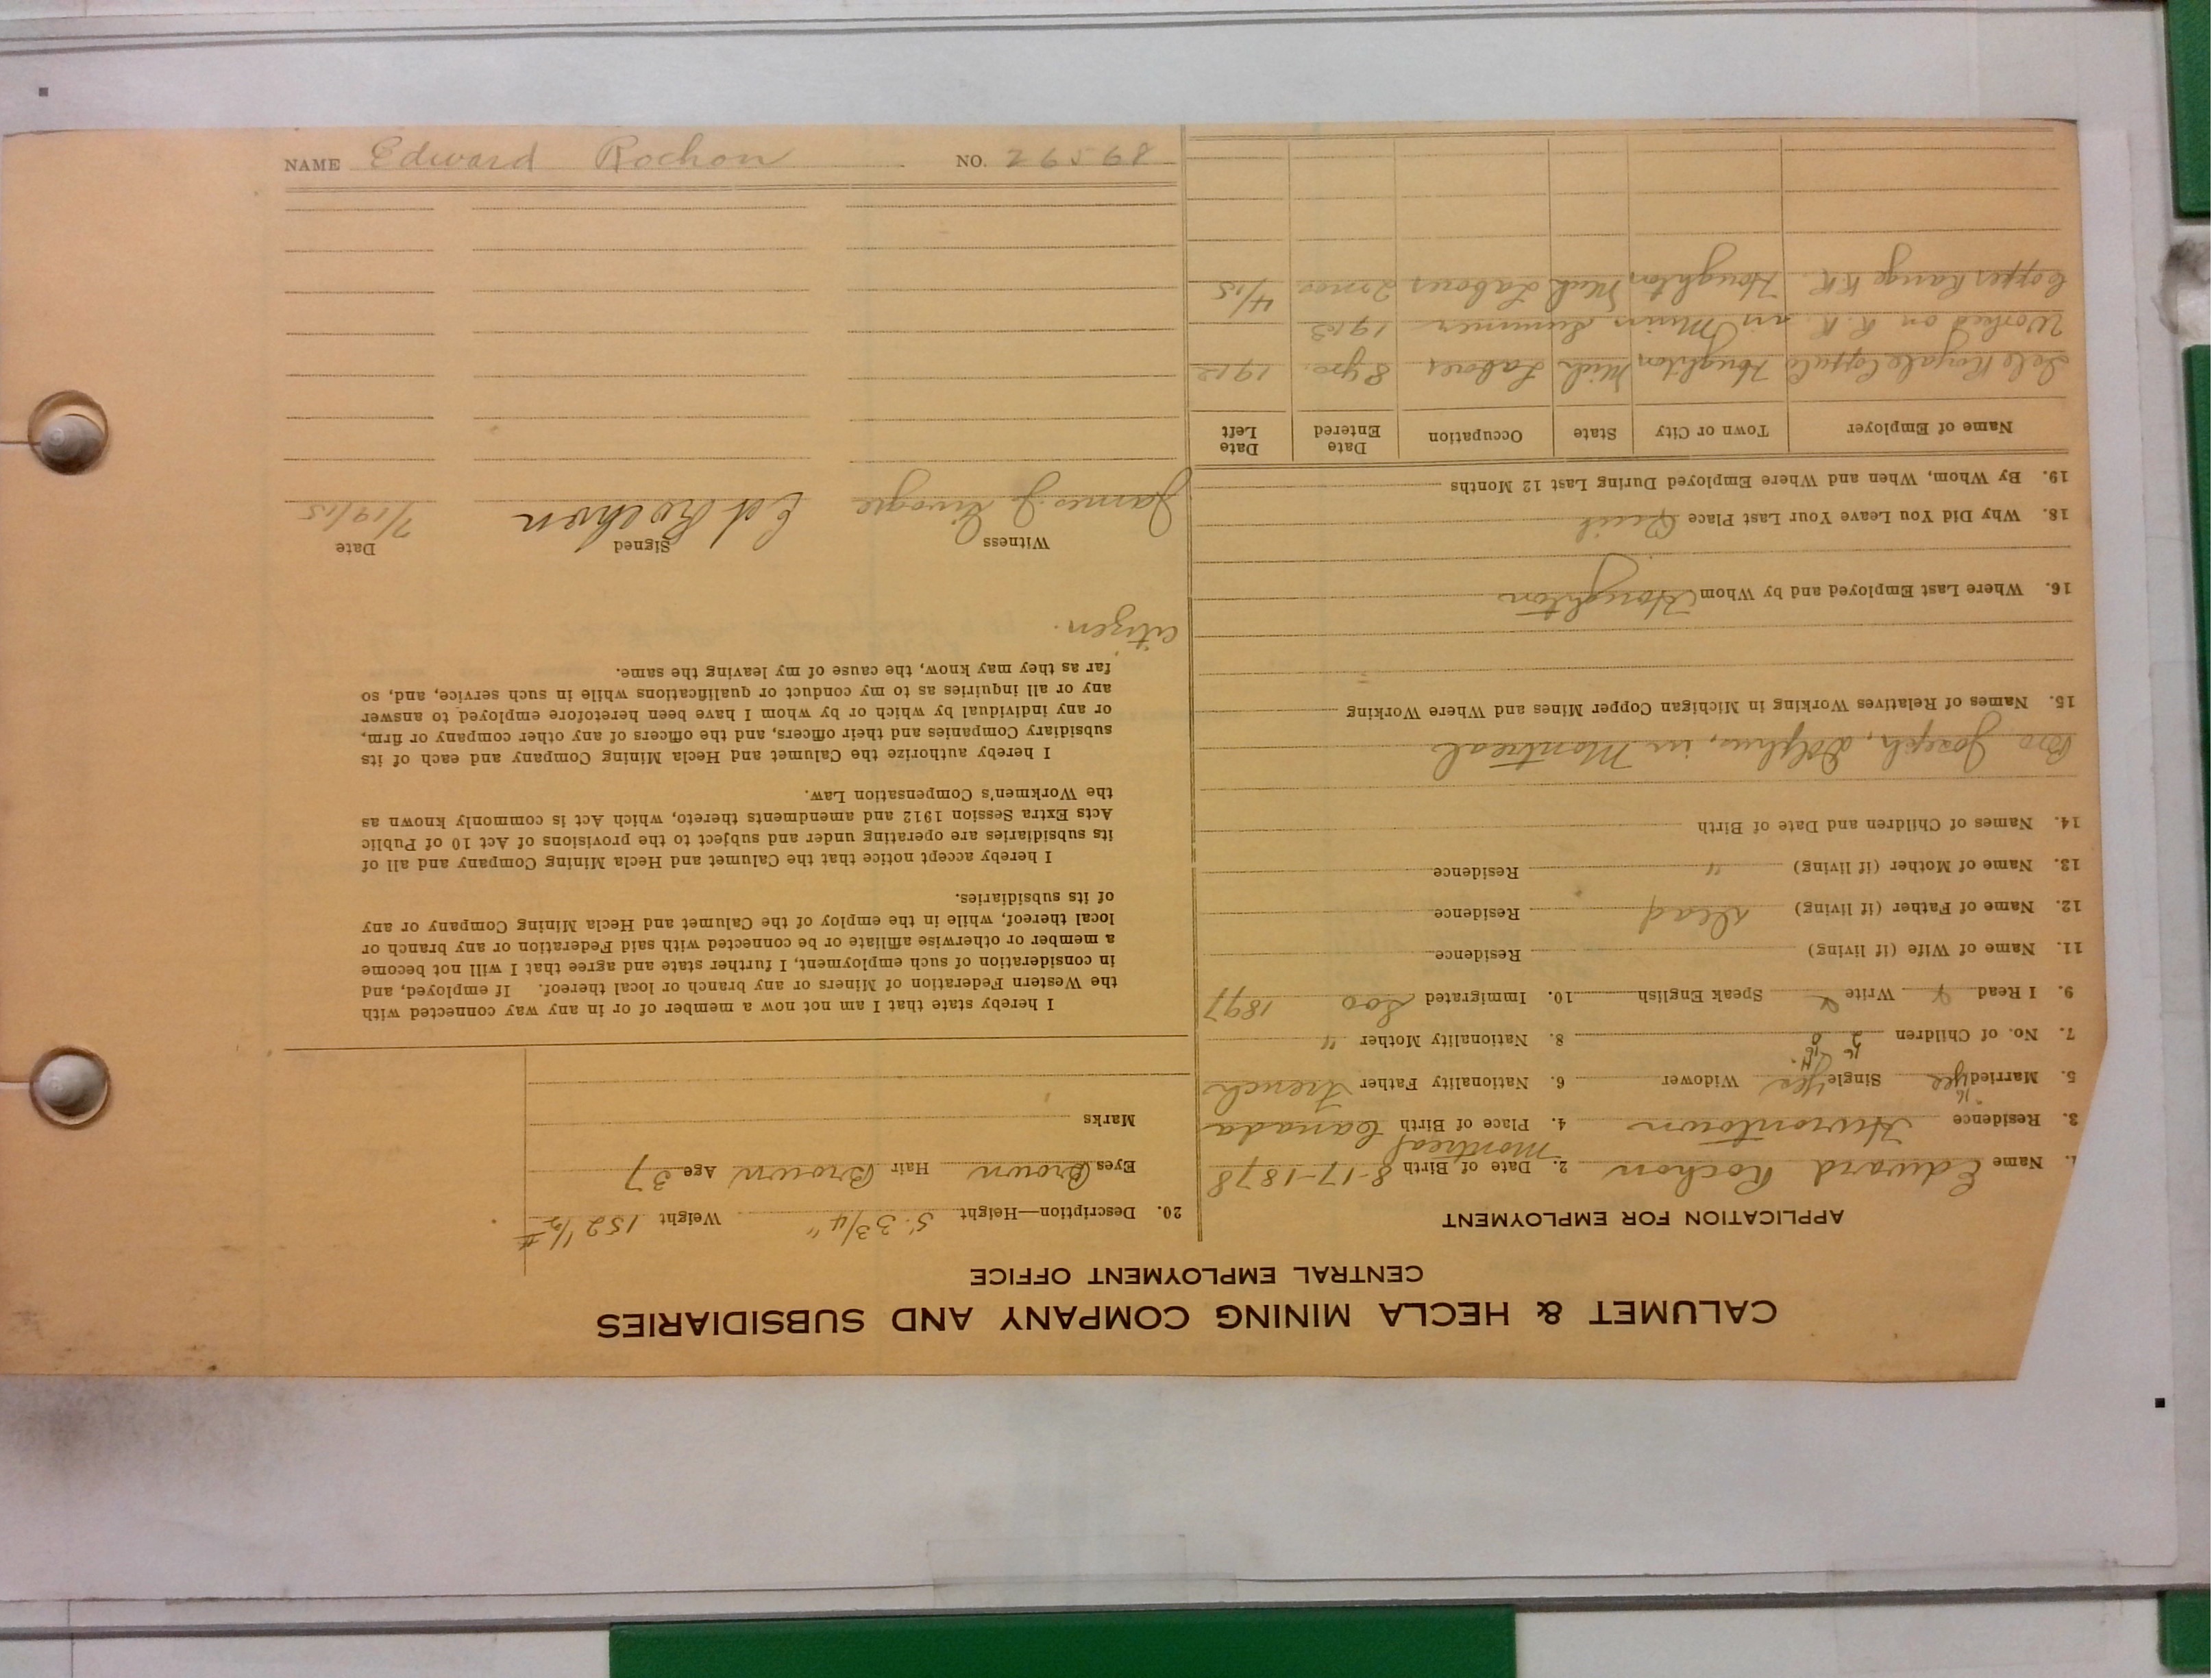 CALUMET & HECLA MINING COMPANY AND SUBSIDIARIES
CENTRAL EMPLOYMENT OFFICE
APPLICATION FOR EMPLOYMENT
1. Name Edward Rochon 2. Date of Birth 8-17-1878
3. Residence Hurontown 4. Place of Birth Montreal Canada
5. Married yes Single yes Widower 6. Nationality Father French
7. No. of Children 2 0 8. Nationality Mother "
9. I Read Write Speak English 10. Immigrated Soo 1897
11. Name of Wife (if living) Residence
12. Name of Father (if living) Dead Residence
13. Name of Mother (if living) " Residence
14. Names of Children and Date of Birth
Bro Joseph, Dolphus, in Montreal
15. Names of Relatives Working in Michigan Copper Mines and Where Working
16. Where Last Employed and by Whom Houghton
18. Why Did You Leave Your Last Place Quit
19. By Whom, When and Where Employed During Last 12 Months
Name of Employer Town or City State Occupation Date Entered Date Left
Isle Royale Copper Co Houghton Mich Laborer 8 yrs. 1912
Worked on R.R. in Minn Summer 1913
Copper Range RR. Houghton Mich Laborer 2 mos 4/15
20. Description—Height 5' 3 3/4" Weight 152 1/2 #
Eyes Brown Hair Brown Age 37
Marks
I hereby state that I am not now a member of or in any way connected with
the Western Federation of Miners or any branch or local thereof. If employed, and
in consideration of such employment, I further state and agree that I will not become
a member or otherwise affiliate or be connected with said Federation or any branch or
local thereof, while in the employ of the Calumet and Hecla Mining Company or any
of its subsidiaries.
I hereby accept notice that the Calumet and Hecla Mining Company and all of
its subsidiaries are operating under and subject to the provisions of Act 10 of Public
Acts Extra Session 1912 and amendments thereto, which Act is commonly known as
the Workmen's Compensation Law.
I hereby authorize the Calumet and Hecla Mining Company and each of its
subsidiary Companies and their officers, and the officers of any other company or firm,
or any individual by which or by whom I have been heretofore employed to answer
any or all inquiries as to my conduct or qualifications while in such service, and, so
far as they may know, the cause of my leaving the same.
citizen.
Witness Signed Date
James J. Ed Rochon 7/19/15
NAME Edward Rochon NO. 26568